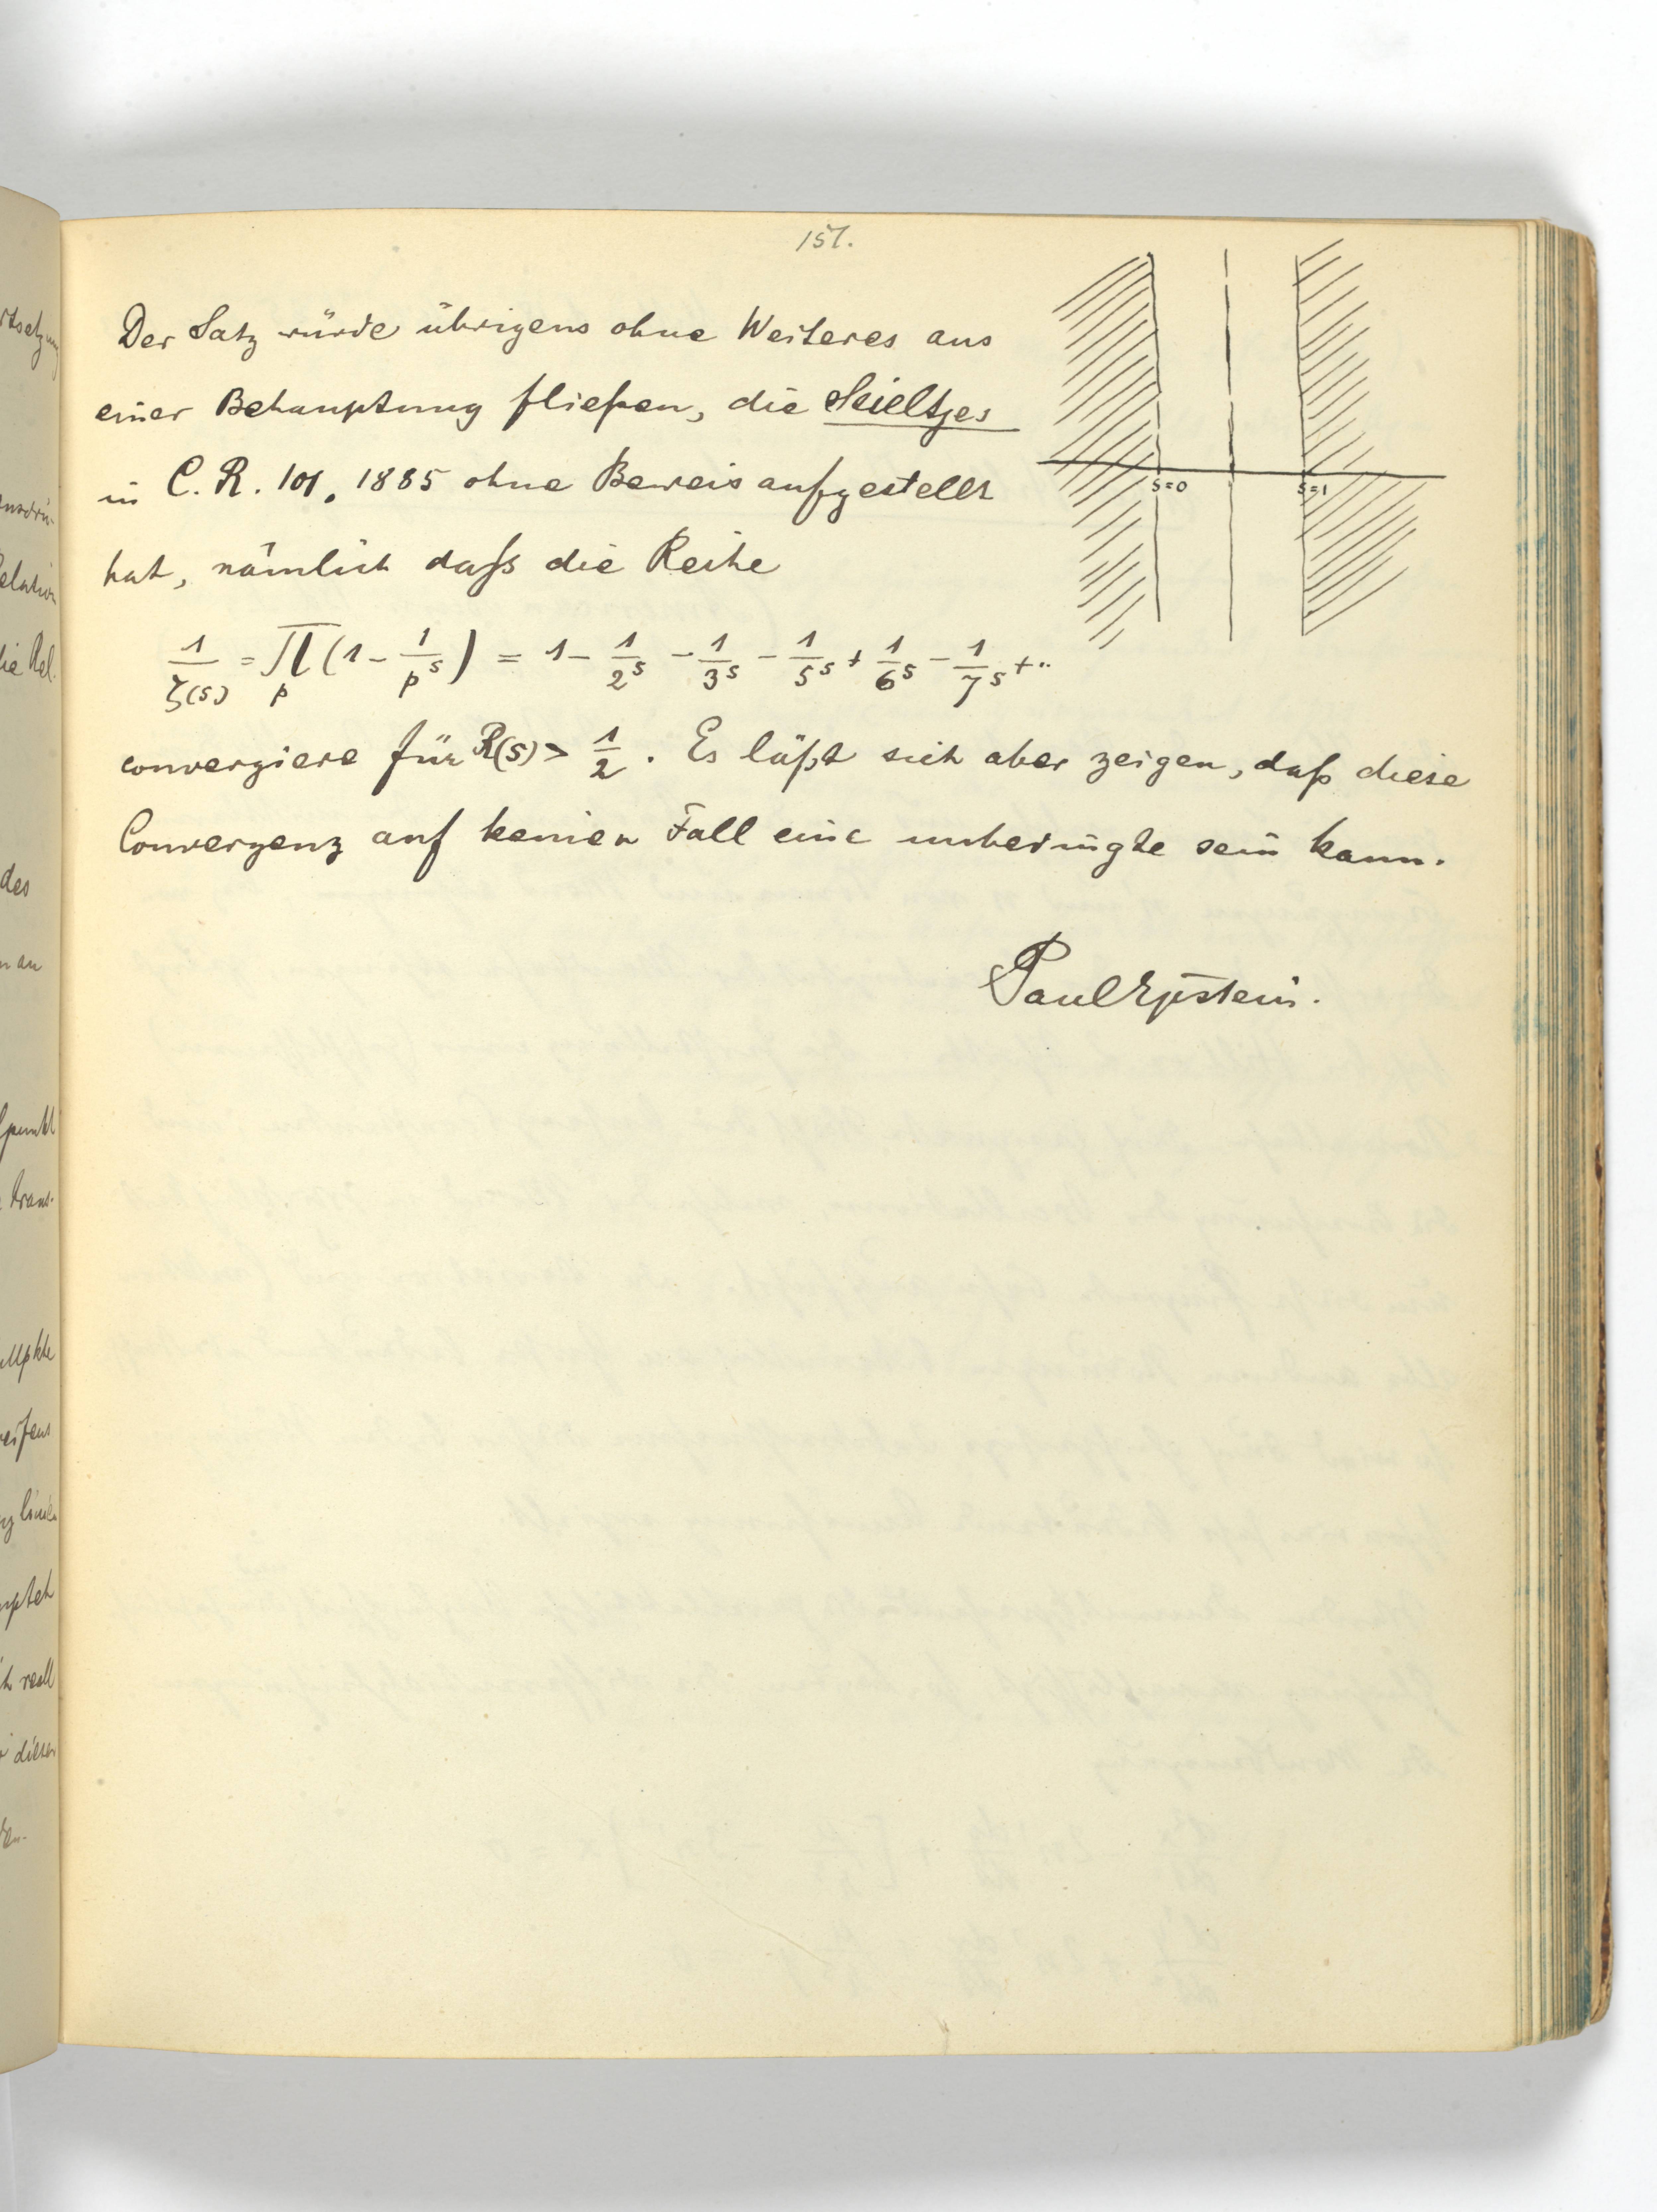 157.
Der Satz würde übrigens ohne Weiteres aus
einer Behauptung fließen, die Stieltjes
in C. R. 101, 1885 ohne Beweis aufgestellt
hat, nämlich daß die Reihe
1/ζ(s) = ∏_p (1 - 1/p^s) = 1 - 1/2^s - 1/3^s - 1/5^s + 1/6^s - 1/7^s + ..
convergiere für R(s) > 1/2. Es läßt sich aber zeigen, daß diese
Convergenz auf keinen Fall eine unbedingte sein kann.
Paul Epstein.
s=0
s=1
des